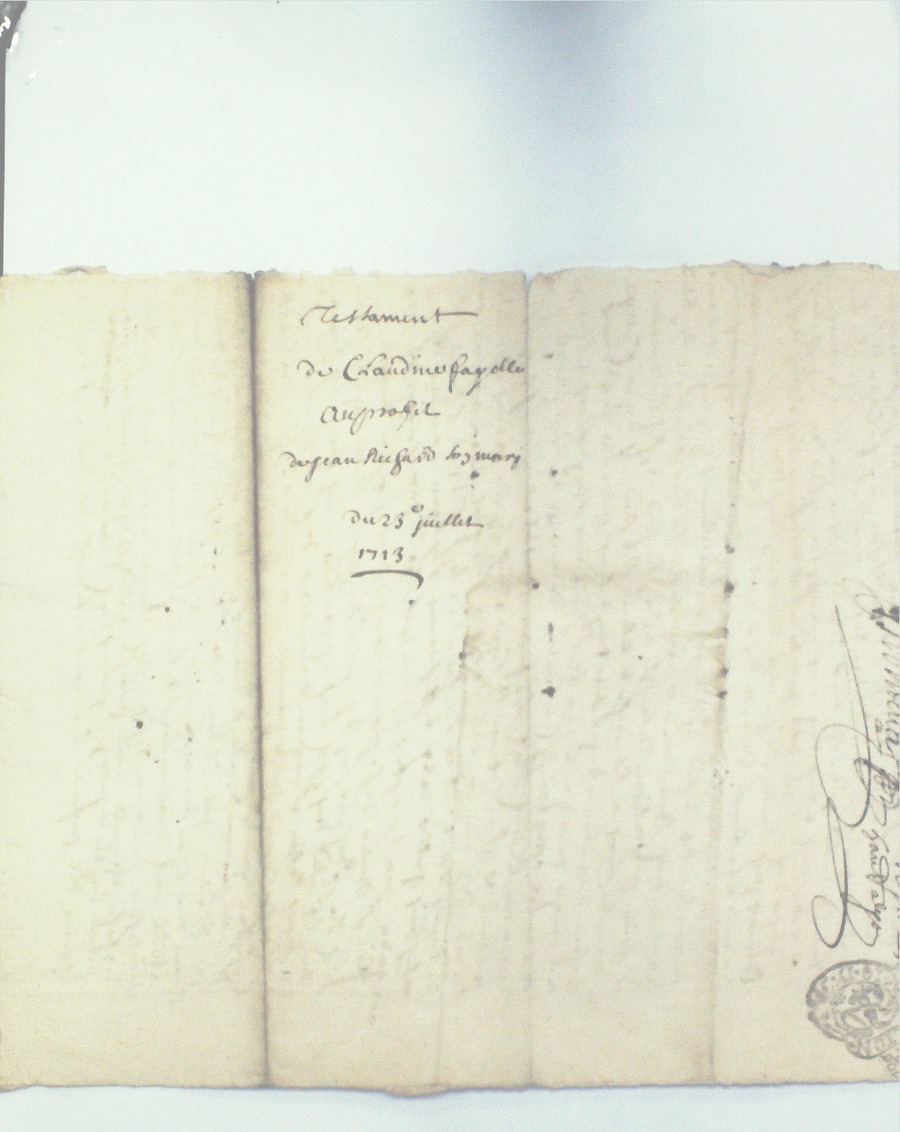 Testament
de Claudine fayolle
au profit
de jean Richard son mary
du 23e juillet
1713